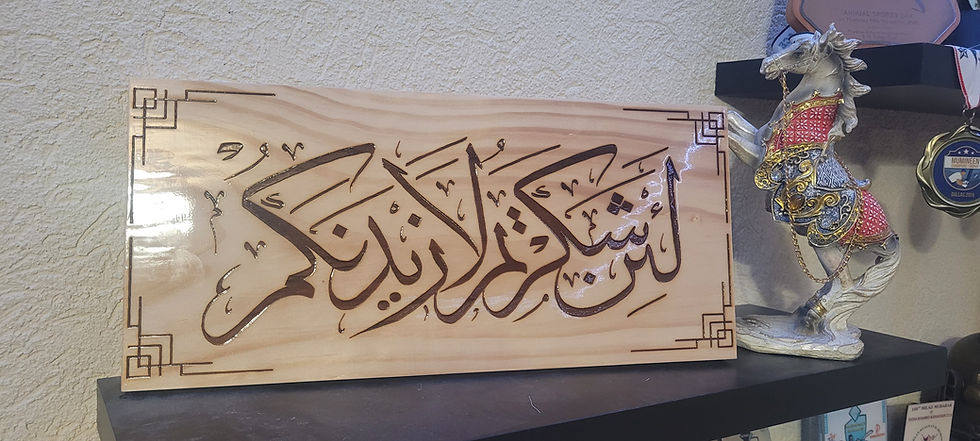 لئن شكرتم لأزيدنكم
ANNUAL SPORTS DAY
MUMINEEN